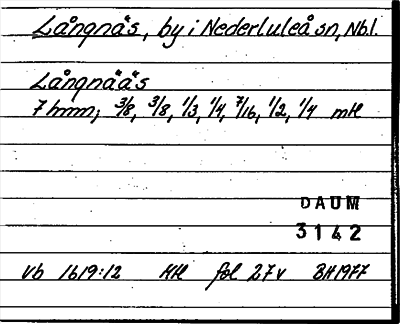 Långnäs, by i Nederluleå sn, Nbl.
Långnääs
7 hmm, 3/8, 3/8, 1/3, 1/4, 7/16, 1/2, 1/4 mtl
DAUM
3142
Vb 1619:12 Mtl fol 27v BH1977